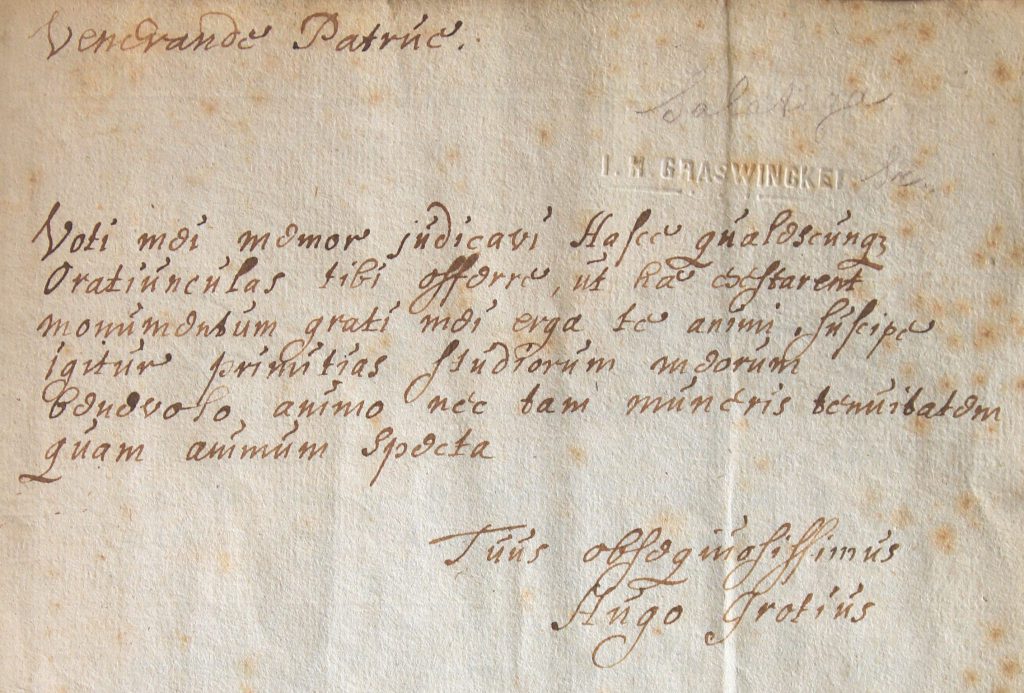 Venerande Patrue.
Salatiga
I. H. GRASWINCKEL
Voti mei memor judicavi Hasce qualescunq;
Oratiunculas tibi offerre, ut hae testarent
monumentum grati mei erga te animi Suscipe
igitur primitias studiorum meorum
benevolo animo nec tam muneris tenuitatem
quam animum specta
Tuus obsequiosissimus
Hugo Grotius